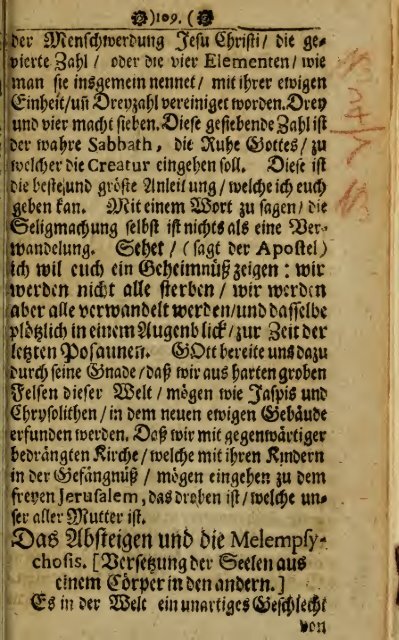 )109.(
der Menschwerdung Jesu Christi / die ge-
vierte Zahl / oder die vier Elementen / wie
man sie insgemein nennet / mit ihrer ewigen
Einheit / uñ Dreyzahl vereiniget worden. Drey
und vier macht sieben. Diese gesiebende Zahl ist
der wahre Sabbath, die Ruhe Gottes / zu
welcher die Creatur eingehen soll. Diese ist
die beste / und gröste Anleitung / welche ich euch
geben kan. Mit einem Wort zu sagen / die
Seligmachung selbst ist nichts als eine Ver-
wandelung. Sehet / (sagt der Apostel)
ich wil euch ein Geheimnüß zeigen: wir
werden nicht alle sterben / wir werden
aber alle verwandelt werden / und dasselbe
plötzlich in einem Augenblick / zur Zeit der
letzten Posaunen. GOtt bereite uns dazu
durch seine Gnade / daß wir aus harten groben
Felsen dieser Welt / mögen wie Jaspis und
Chrysolithen / in dem neuen ewigen Gebäude
erfunden werden. Daß wir mit gegenwärtiger
bedrängten Kirche / welche mit ihren Kindern
in der Gefängnüß / mögen eingehen zu dem
freyen Jerusalem, das droben ist / welche un-
ser aller Mutter ist.
Das Absteigen und die Melempsy-
chosis. [Versetzung der Seelen aus
einem Cörper in den andern.]
Es in der Welt ein unartiges Geschlecht
von